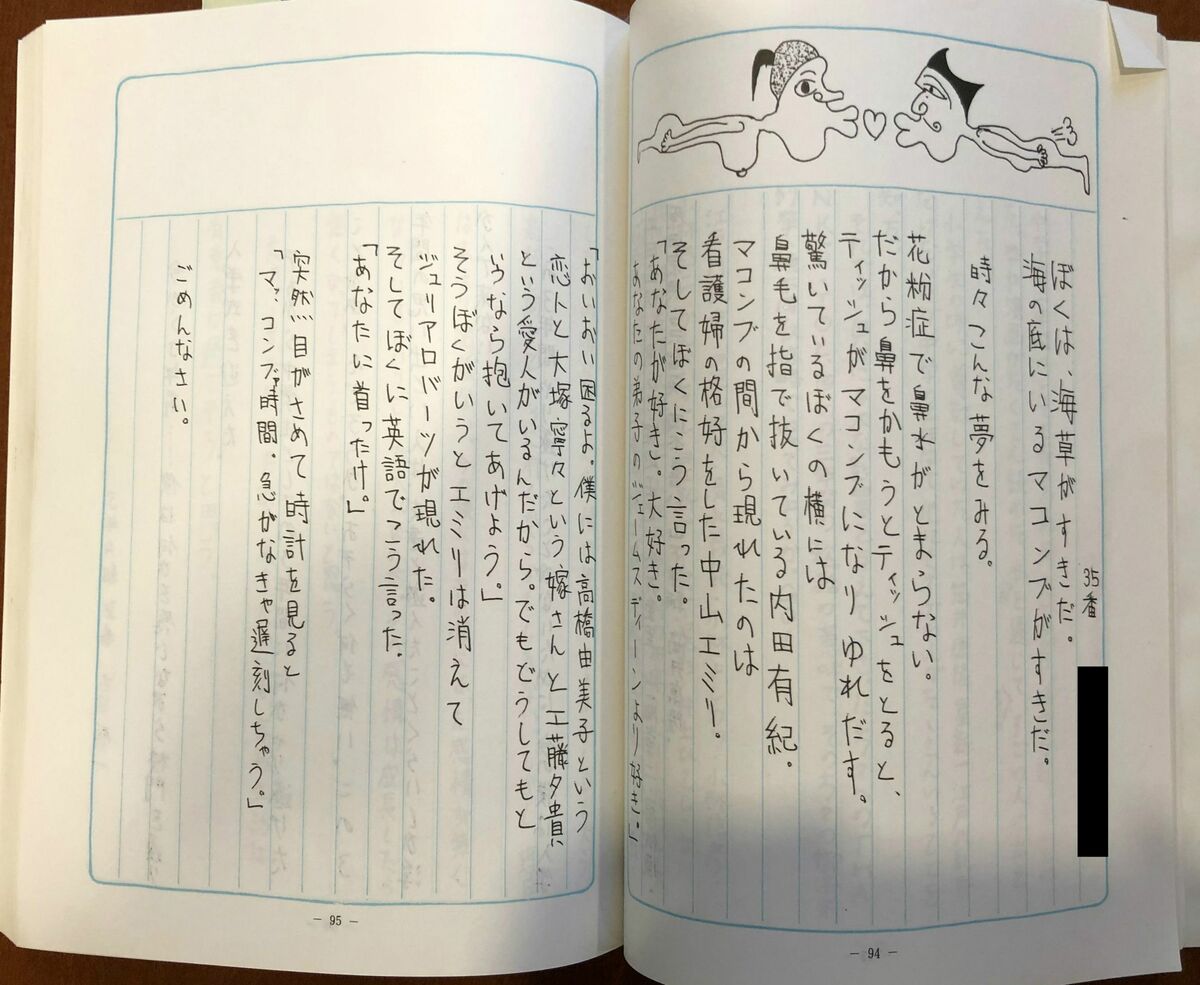 35番
ぼくは、海草がすきだ。
海の底にいるマコンブがすきだ。
時々こんな夢をみる。
花粉症で鼻水がとまらない。
だから鼻をかもうとティッシュをとると、
ティッシュがマコンブになりゆれだす。
驚いているぼくの横には
鼻毛を指で抜いている内田有紀。
マコンブの間から現れたのは
看護婦の格好をした中山エミリ。
そしてぼくにこう言った。
「あなたが好き。大好き。
あなたの弟子のジェームスディーンより好き。」
- 94 -
「おいおい困るよ。僕には高橋由美子という
恋人と大塚寧々という嫁さんと工藤夕貴
という愛人がいるんだから。でもどうしてもと
いうなら抱いてあげよう。」
そうぼくがいうとエミリは消えて
ジュリアロバーツが現れた。
そしてぼくに英語でこう言った。
「あなたに首ったけ。」
突然目がさめて時計を見ると
「マァ、コンブァ時間。急がなきゃ遅刻しちゃう。」
ごめんなさい。
- 95 -